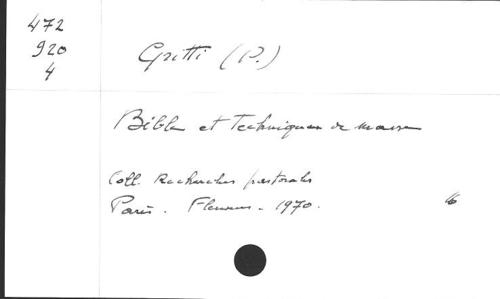 472
920
4
Gritti (P.)
Bible et Techniques de masse
Coll. Recherches pastorales
Paris. Fleurus. 1970.